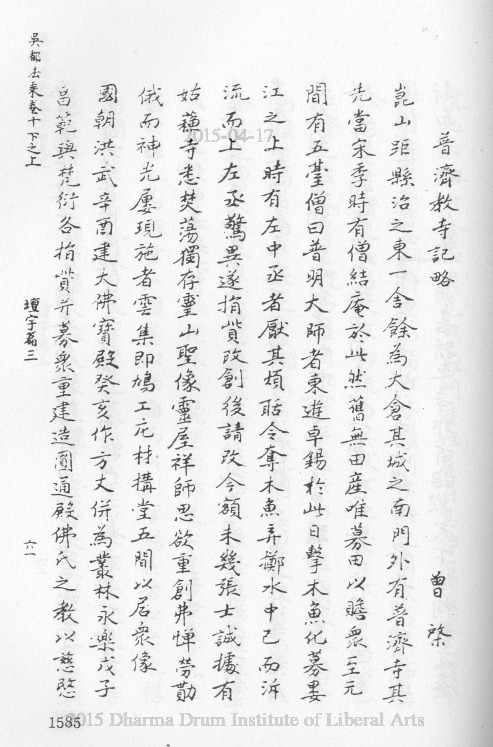 普濟教寺記略
曾棨
崑山距縣治之東一舍餘為大倉其城之南門外有普濟寺其
先當宋季時有僧結庵於此然舊無田產唯募田以贍眾至元
間有五臺僧曰普明大師者東遊卓錫於此日擊木魚化募婁
江之上時有左中丞者厭其煩聒令奪木魚弃擲水中已而泝
流而上左丞驚異遂捐貲改創後請改今額未幾張士誠據有
姑蘇寺悉焚蕩獨存靈山聖像靈屋祥師思欲重創弗憚勞勩
俄而神光屢現施者雲集即鳩工庀材構堂五間以居眾像
國朝洪武辛酉建大佛寶殿癸亥作方丈併為叢林永樂戊子
昌範與梵衍各捐貲并募眾重建造圓通殿佛氏之教以慈愍
吳都法乘卷十下之上
壇宇篇三
六一
1585
2015-04-17
2015 Dharma Drum Institute of Liberal Arts